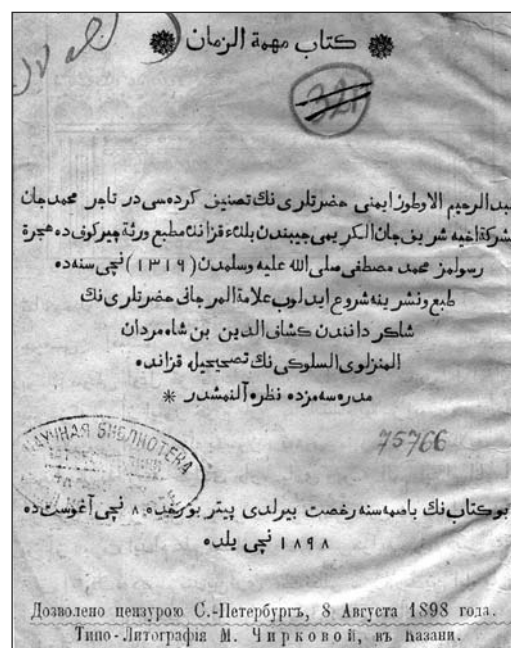 كتاب مهمة الزمان
321
عبدالرحيم الاوطوز ايمنى حضرتلرى نك تصنيف كرده سى در تاجر محمدجان
بشركة اخيه شريف جان الكريمى جيبندن بلدۀ قزاننك مطبع ورثۀ چيركوف ده هجرة
رسولمز محمد مصطفى صلى الله عليه وسلمدن (١٣١٩) نچى سنه ده
طبع ونشرينه شروع ايدلوب علامة المرجانى حضرتلرى نك
شاكردانندن كشاف الدين بن شاه مردان
المنزلوى السلوكى نك تصحيحيله قزانده
مدرسه مزده نظره آلنمشدر *
75766
НАУЧНАЯ БИБЛИОТЕКА
بو كتاب نك باصمه سنه رخصت بيرلدى پيتربورغده ٨ نچى آغوست ده
١٨٩٨ نچى يلده
Дозволено цензурою С.-Петербургъ, 8 Августа 1898 года.
Типо-Литографія М. Чирковой, въ Казани.